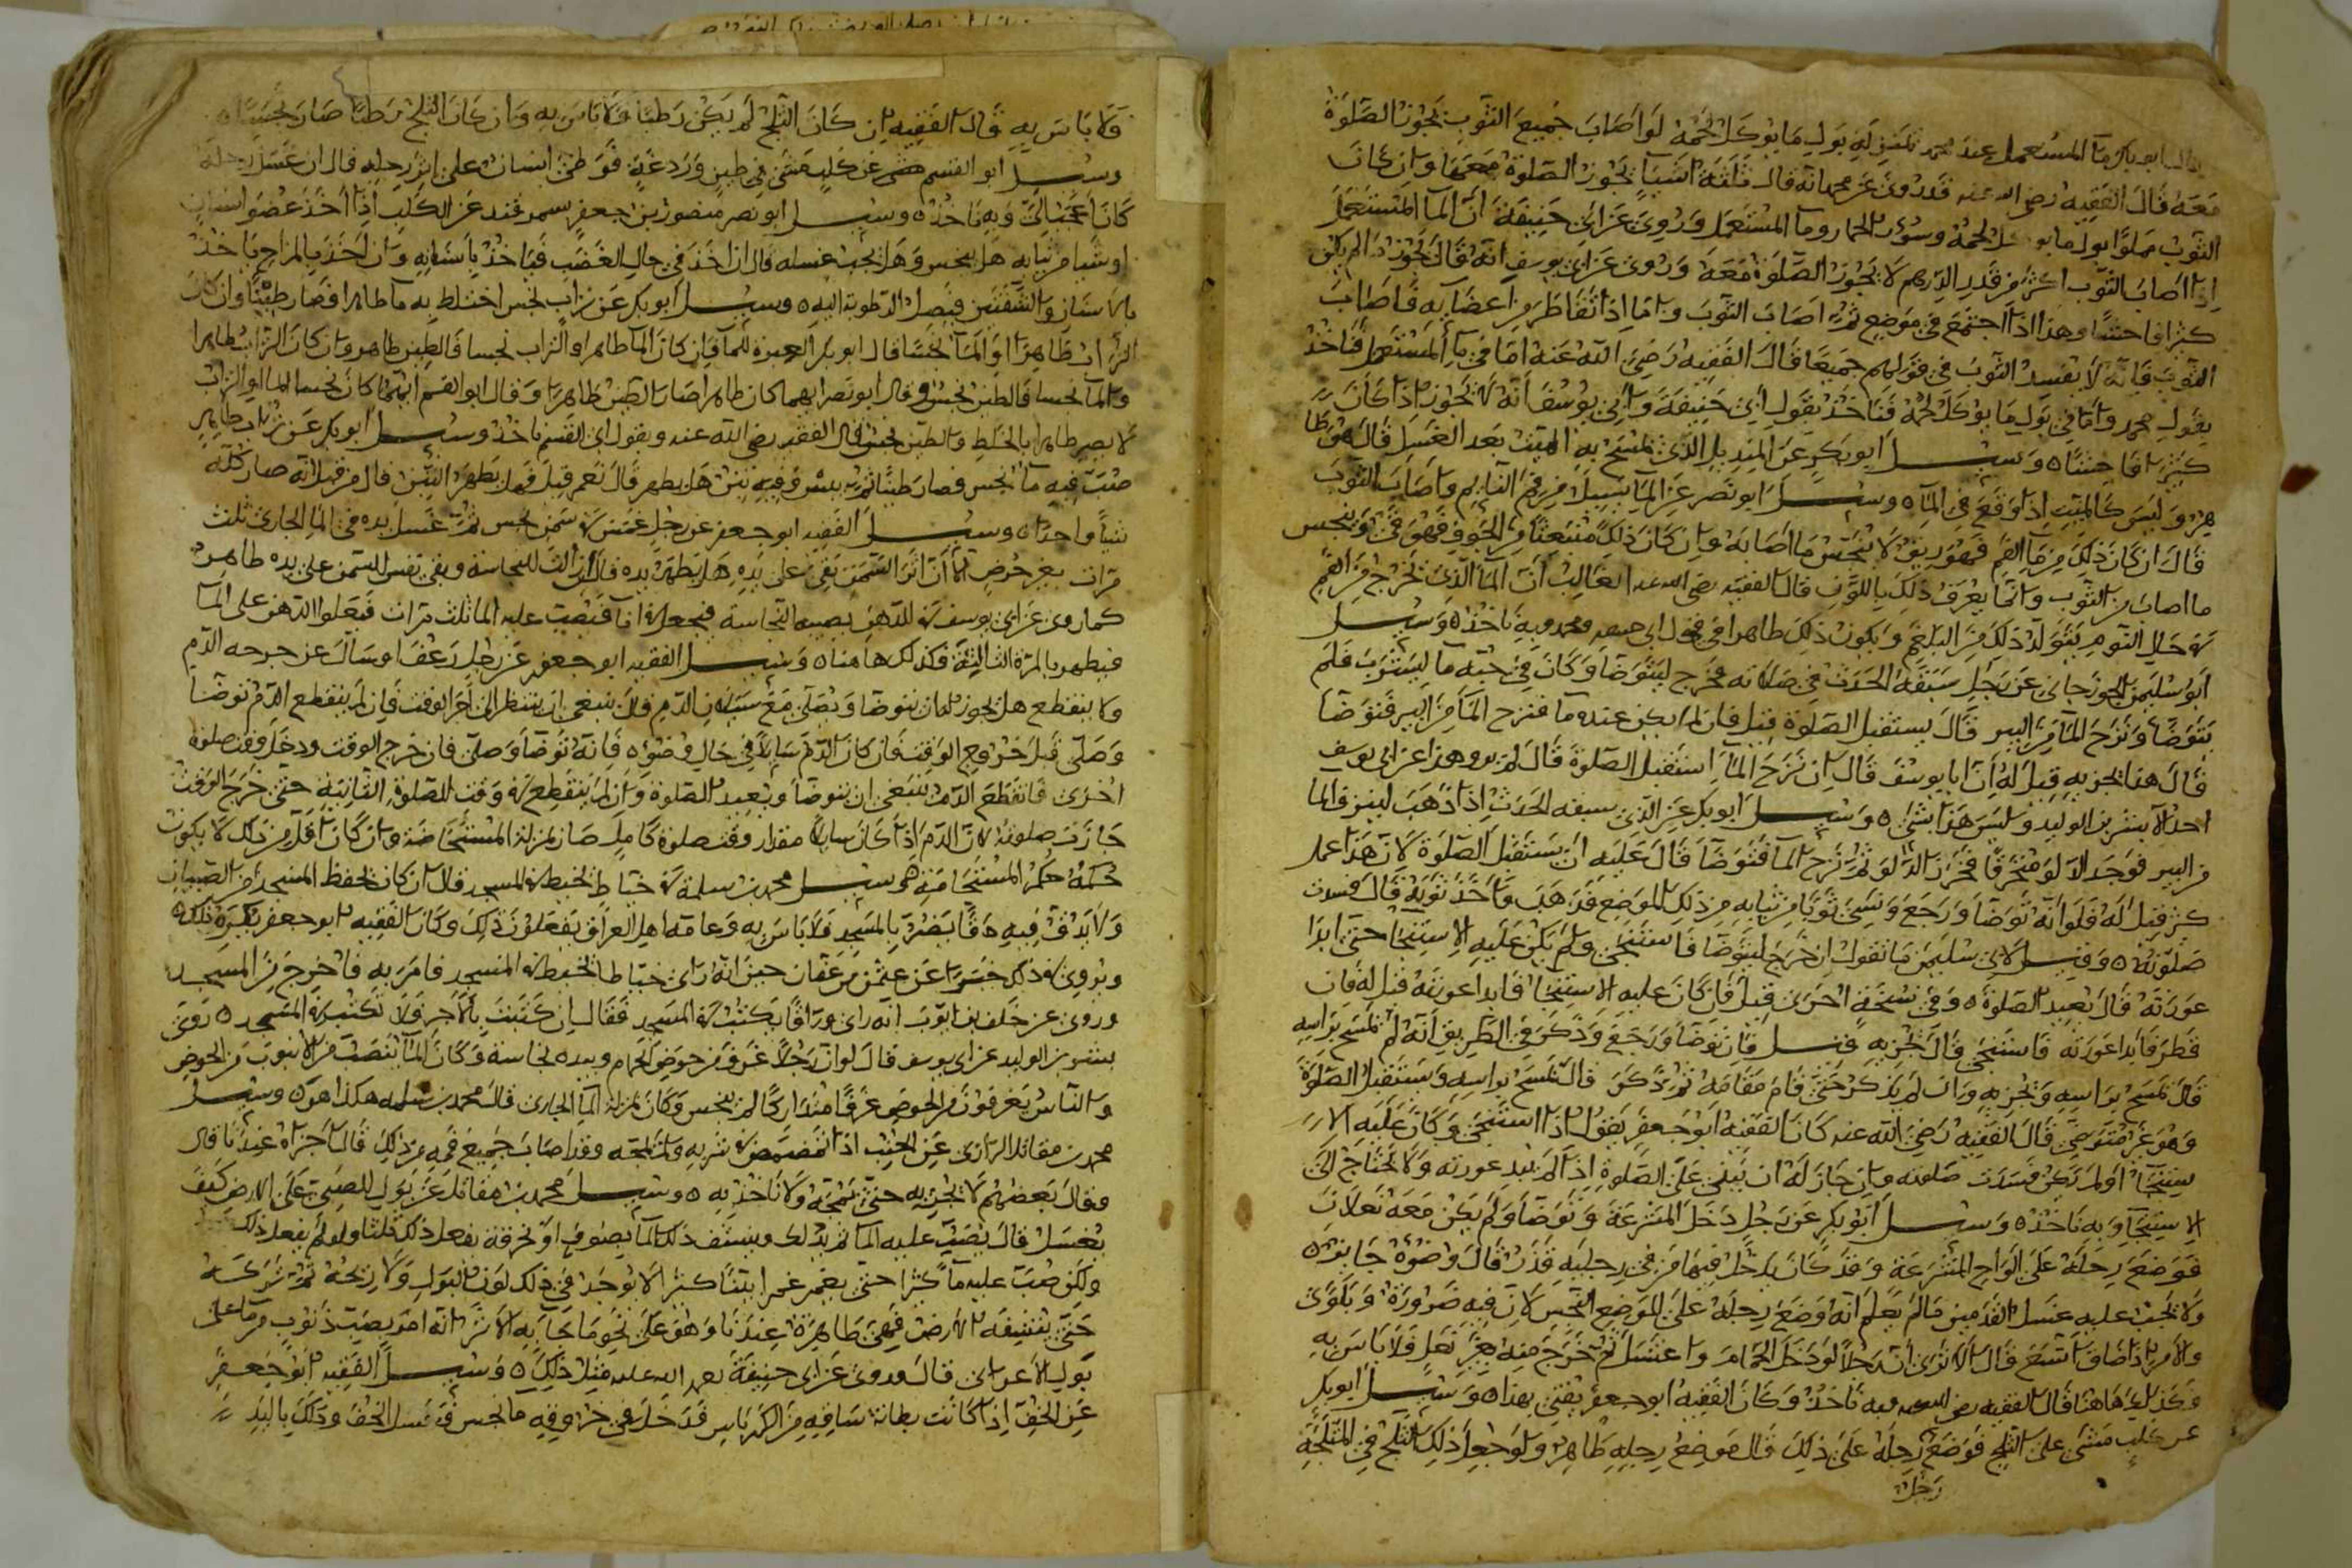 قال ابو بكر ما المستعمل عند محمد بمنزلة بول ما يوكل لحمه لو اصاب جميع الثوب تجوز الصلوة
معه قال الفقيه رضي الله عنه قد روي عن محمد انه قال ثلثة اشيا تجوز الصلوة معها وان كان
الثوب مملوا بول ما يوكل لحمه وسؤر الحمار وما المستعمل وروي عن ابي حنيفة ان الما المستعمل
اذا اصاب الثوب اكثر من قدر الدرهم لا يجوز الصلوة معه وروي عن ابي يوسف انه قال تجوز ما لم يكن
كثيرا فاحشا وهذا اذا اجتمع في موضع ثم اصاب الثوب واما اذا تقاطر من اعضايه فاصاب
الثوب فانه لا يفسد الثوب في قولهم جميعا قال الفقيه رضي الله عنه اما في ما المستعمل فناخذ
بقول محمد واما في بول ما يوكل لحمه فناخذ بقول ابي حنيفة وابي يوسف انه لا يجوز اذا كان
كثيرا فاحشا ه وسيل ابو بكر عن المنديل الذي يمسح به الميت بعد الغسل قال هو طا
هر وليس كالميت اذا وقع في الما ه وسيل ابو نصر عن الما يسيل من فم النايم واصاب الثوب
قال ان كان ذلك من ما الفم فهو ريق لا ينجس ما اصابه وان كان ذلك منبعثا من الجوف فهو قي وينجس
ما اصاب من الثوب وانما يعرف ذلك باللون قال الفقيه رضي الله عنه الغالب ان الما الذي يخرج من الفم
في حال النوم يتولد ذلك من البلغم ويكون ذلك طاهرا في قول ابي حنيفة ومحمد وبه ناخذ ه وسيل
ابو سليمن الجوزجاني عن رجل سبقه الحدث في صلاته فخرج ليتوضا وكان في جبه ما ليشرب فلم
يتوضا ونزح الما من البير قال يستقبل الصلوة قيل فان لم يكن عنده ما فنزح الما من البير فتوضا
قال هذا يجزيه قيل له ان ابا يوسف قال ان نزح الما استقبل الصلوة قال لم يرو هذا عن ابي يوسف
احد الا بشر بن الوليد وليس هذا بشي ه وسيل ابو بكر عن الذي سبقه الحدث اذا ذهب لينزف الما
من البير فوجد الدلو منخرقا فخرز الدلو ثم نزح الما فتوضا قال عليه ان يستقبل الصلوة لان هذا عمل
كثير قيل له فلو انه توضا ورجع ونسي ثوبا من ثيابه من ذلك الموضع فذهب واخذ ثوبه قال فسدت
صلوته ه وقيل لابي سليمن ما تقول ان خرج ليتوضا فاستنجى ولم يكن عليه الاستنجا حتى ابدا
عورته قال يعيد الصلوة ه وفي نسخة اخرى قيل فان كان عليه الاستنجا فابدا عورته قيل له فان
قطر فابدا عورته فاستنجى قال يجزيه قيل فان توضا ورجع وذكر في الطريق انه لم يمسح براسه
قال يمسح براسه ويجزيه وان لم يذكر حتى قام مقامه ثم ذكر قال يمسح براسه ويستقبل الصلوة
وهو غير متوضي قال الفقيه رضي الله عنه كان الفقيه ابو جعفر يقول اذا استنجى وكان عليه الا
ستنجا او لم يكن فسدت صلوته وان جاز له ان يبني على الصلوة اذا لم يبد عورته ولا يحتاج الى
الاستنجا وبه ناخذ ه وسيل ابو بكر عن رجل دخل المشرعة وتوضا ولم يكن معه نعلان
فوضع رجله على الواح المشرعة وقد كان يدخل فيها من في رجليه قذر قال وضوه جايز ه
ولا يجب عليه غسل القدمين ما لم يعلم انه وضع رجله على الموضع النجس لان فيه ضرورة وبلوى
والامر اذا ضاق اتسع قال الا ترى ان رجلا لو دخل الحمام واغتسل ثم خرج منه بغير نعل فلا باس به
وكذلك هاهنا قال الفقيه رضي الله عنه وبه ناخذ وكان الفقيه ابو جعفر يفتي بهذا ه وسيل ابو بكر
عن كلب مشى على الثلج فوضع رجله على ذلك قال موضع رجله طاهر ولو جعل ذلك الثلج في المثلجة
رجل
فلا باس به قال الفقيه ان كان الثلج لم يكن رطبا فلا باس به وان كان الثلج رطبا صار نجسا ه
وسيل ابو القسم عن كلب مشى في طين وردغة فوطئ انسان على اثر رجله قال ان غسل رجله
كان اعجب الي وبه ناخذ ه وسيل ابو نصر منصور بن جعفر سمرقند عن الكلب اذا اخذ عضو انسان
او شيا من ثيابه هل ينجس وهل يجب غسله قال ان اخذ في حال الغضب فياخذ باسنانه وان اخذ بالمزاح ياخذ
بالاسنان والشفتين فيصل الرطوبة اليه ه وسيل ابو بكر عن تراب نجس اختلط به ما طاهر فصار طينا وان كان
التراب طاهرا او الما نجسا قال ابو بكر العبرة للما فان كان الما طاهرا والتراب نجسا فالطين طاهر وان كان التراب طاهرا
والما نجسا فالطين نجس وقال ابو نصر ايهما كان طاهرا صار الطين طاهرا وقال ابو القسم ايهما كان نجسا الما او التراب
لا يصير طاهرا بالخلط والطين نجس قال الفقيه رضي الله عنه وبقول ابي القسم ناخذ وسيل ابو بكر عن تراب طاهر
صب فيه ما نجس فصار طينا ثم يبس وفيه تبن هل يطهر قال نعم قيل فهل يطهر التبن قال من قبل انه صار كله
شيا واحدا ه وسيل الفقيه ابو جعفر عن رجل غمس في سمن نجس ثم غسل يده في الما الجاري ثلث
مرات بغير حرض الا ان اثر السمن بقي على يده هل يطهر يده قال زالت النجاسة وبقي نفس السمن على يده طاهر
كما روي عن ابي يوسف في الدهن يصيبه النجاسة فيجعل في انا فيصب عليه الما ثلث مرات فيعلوا الدهن على الما
فيطهر بالمرة الثالثة فكذلك هاهنا ه وسيل الفقيه ابو جعفر عن رجل رعف او سال عن جرحه الدم
ولا ينقطع هل يجوز له ان يتوضا ويصلي مع سيلان الدم قال ينبغي ان ينتظر الى اخر الوقت فان لم ينقطع الدم توضا
وصلى قبل خروج الوقت فان كان الدم سايلا في حال وضوه فانه توضا وصلى فان خرج الوقت ودخل وقت صلوة
اخرى فانقطع الدم ينبغي ان يتوضا ويعيد الصلوة وان لم ينقطع في وقت الصلوة الثانية حتى خرج الوقت
جازت صلوته لان الدم اذا كان سايلا مقدار وقت صلوة كامل صار بمنزلة المستحاضة وان كان اقل من ذلك لا يكون
حكمه حكم المستحاضة ه وسيل محمد بن سلمة في خياط يخيط في المسجد قال ان كان يحفظ المسجد من الصبيان
ولا يدق فيه دقا يضر بالمسجد فلا باس به وعامة اهل العراق يفعلون ذلك وكان الفقيه ابو جعفر يكره ذلك ه
ويروي في ذلك خبرا عن عثمن بن عفان حين انه راى خياطا يخيط في المسجد فامر به فاخرج من المسجد
وروي عن خلف بن ايوب انه راى وراقا يكتب في المسجد فقال ان كتبت بالاجر فلا تكتب في المسجد ه روى
بشر بن الوليد عن ابي يوسف قال لو ان رجلا غرف من حوض الحمام وبيده نجاسة وكان الما ينصب من الانبوب في الحوض
والناس يغرفون من الحوض غرفا متداركا لم ينجس وكان بمنزلة الما الجاري قال محمد بن سلمه هكذا هو ه وسيل
محمد بن مقاتل الرازي عن الجنب اذا تمضمض في شربه ولم يمجه وقد اصاب جميع فمه من ذلك قال اجزاه عندنا قال
وقال بعضهم لا يجزيه حتى يمجه ولا ناخذ به ه وسيل محمد بن مقاتل عن بول الصبي على الارض كيف
يغسل قال يصب عليه الما ثم يدلك وينشف ذلك الما بصوف او خرقة يفعل ذلك ثلثا ولو لم يفعل ذلك
ولكن صب عليه ما كثيرا حتى يغمر غمرا بينا كثيرا لا يوجد في ذلك لون البول ولا ريحه ثم تركه
حتى ينشفه الارض فهي طاهرة عندنا وهو على نحو ما جا به الاثر انه امر بصب ذنوب من ما على
بول الاعرابي قال وروي عن ابي حنيفة رحمه الله عليه مثل ذلك ه وسيل الفقيه ابو جعفر
عن الخف اذا كانت بطانة ساقه من الكرباس فدخل في خروقه ما نجس فغسل الخف ودلك باليد